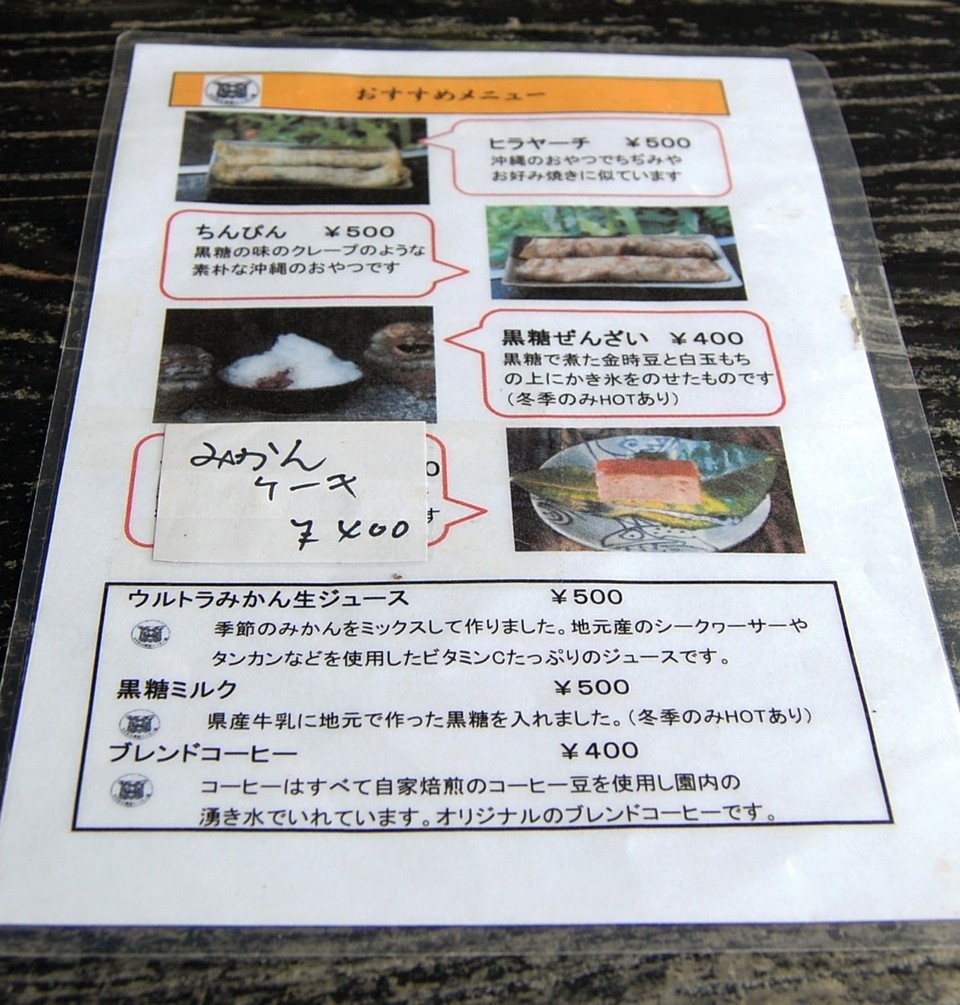 おすすめメニュー
ヒラヤーチ ￥500
沖縄のおやつでちぢみや
お好み焼きに似ています
ちんびん ￥500
黒糖の味のクレープのような
素朴な沖縄のおやつです
黒糖ぜんざい ￥400
黒糖で煮た金時豆と白玉もち
の上にかき氷をのせたものです
（冬季のみHOTあり）
みかん
ケーキ
￥400
0
す
ウルトラみかん生ジュース ￥500
季節のみかんをミックスして作りました。地元産のシークヮーサーや
タンカンなどを使用したビタミンCたっぷりのジュースです。
黒糖ミルク ￥500
県産牛乳に地元で作った黒糖を入れました。（冬季のみHOTあり）
ブレンドコーヒー ￥400
コーヒーはすべて自家焙煎のコーヒー豆を使用し園内の
湧き水でいれています。オリジナルのブレンドコーヒーです。